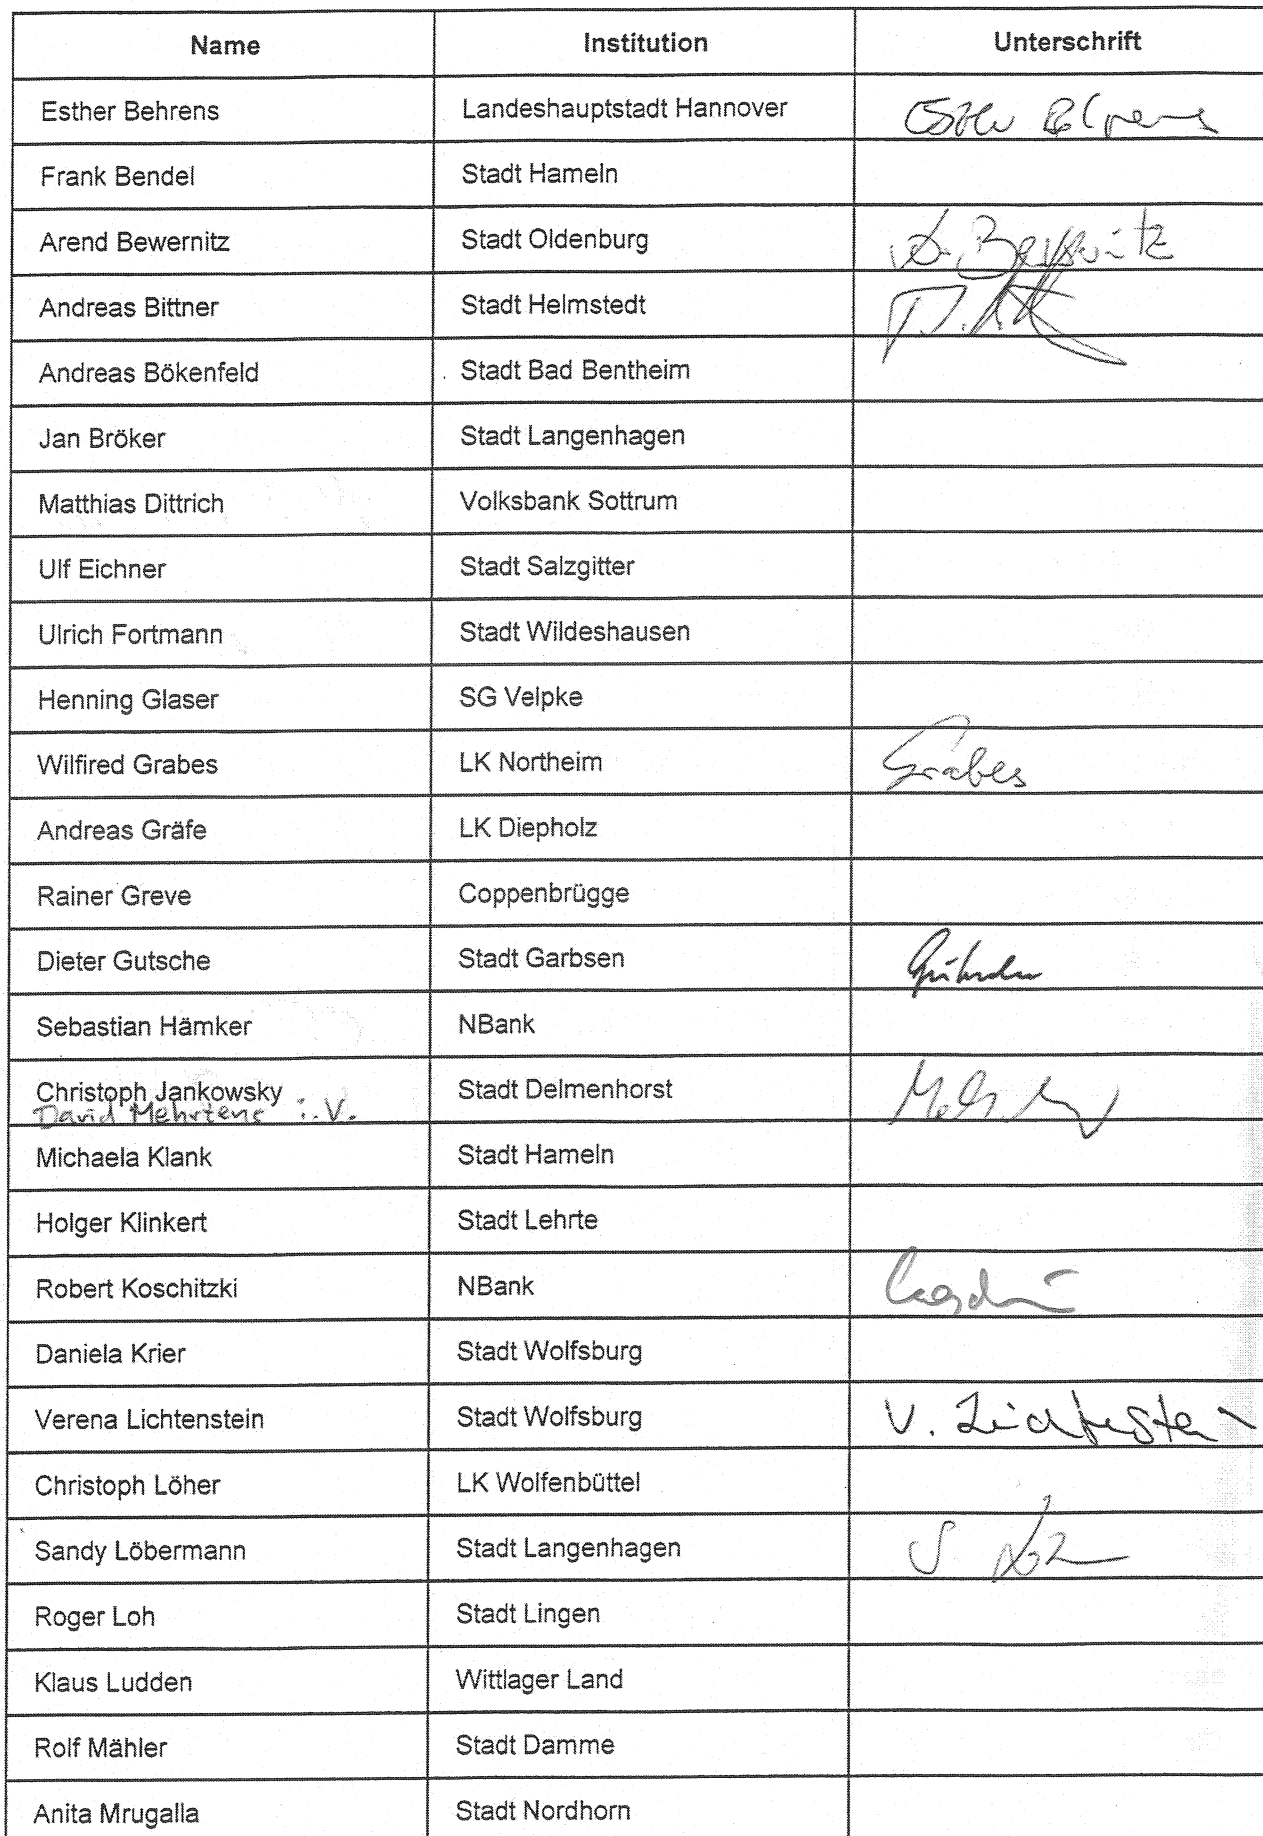 Name Institution Unterschrift
Esther Behrens Landeshauptstadt Hannover Esther Behrens
Frank Bendel Stadt Hameln
Arend Bewernitz Stadt Oldenburg A. Bewernitz
Andreas Bittner Stadt Helmstedt
Andreas Bökenfeld Stadt Bad Bentheim
Jan Bröker Stadt Langenhagen
Matthias Dittrich Volksbank Sottrum
Ulf Eichner Stadt Salzgitter
Ulrich Fortmann Stadt Wildeshausen
Henning Glaser SG Velpke
Wilfired Grabes LK Northeim Grabes
Andreas Gräfe LK Diepholz
Rainer Greve Coppenbrügge
Dieter Gutsche Stadt Garbsen
Sebastian Hämker NBank
Christoph Jankowsky Stadt Delmenhorst
David Mehrtens i.V.
Michaela Klank Stadt Hameln
Holger Klinkert Stadt Lehrte
Robert Koschitzki NBank
Daniela Krier Stadt Wolfsburg
Verena Lichtenstein Stadt Wolfsburg V. Lichtenstein
Christoph Löher LK Wolfenbüttel
Sandy Löbermann Stadt Langenhagen
Roger Loh Stadt Lingen
Klaus Ludden Wittlager Land
Rolf Mähler Stadt Damme
Anita Mrugalla Stadt Nordhorn